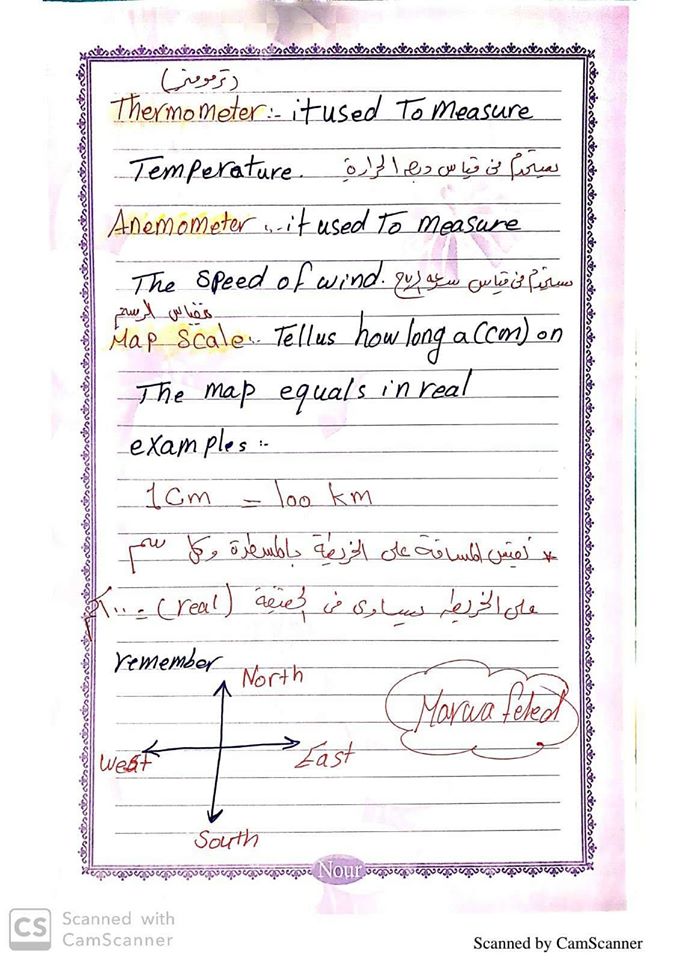 (ترمومتر)
Thermometer:- it used To Measure
Temperature. يستخدم فى قياس درجه الحرارة
Anemometer :- it used To measure
The speed of wind. يستخدم فى قياس سرعه الرياح
مقياس الرسم
Map Scale:- Tell us how long a (cm) on
The map equals in real
examples :-
1 Cm = 100 km
* نقيس المسافة على الخريطة بالمسطرة وكل سم
على الخريطه يساوى فى الحقيقة (real) = ١٠٠ كم
remember
North
Marwa
West
East
South
Nour
CS Scanned with
CamScanner
Scanned by CamScanner